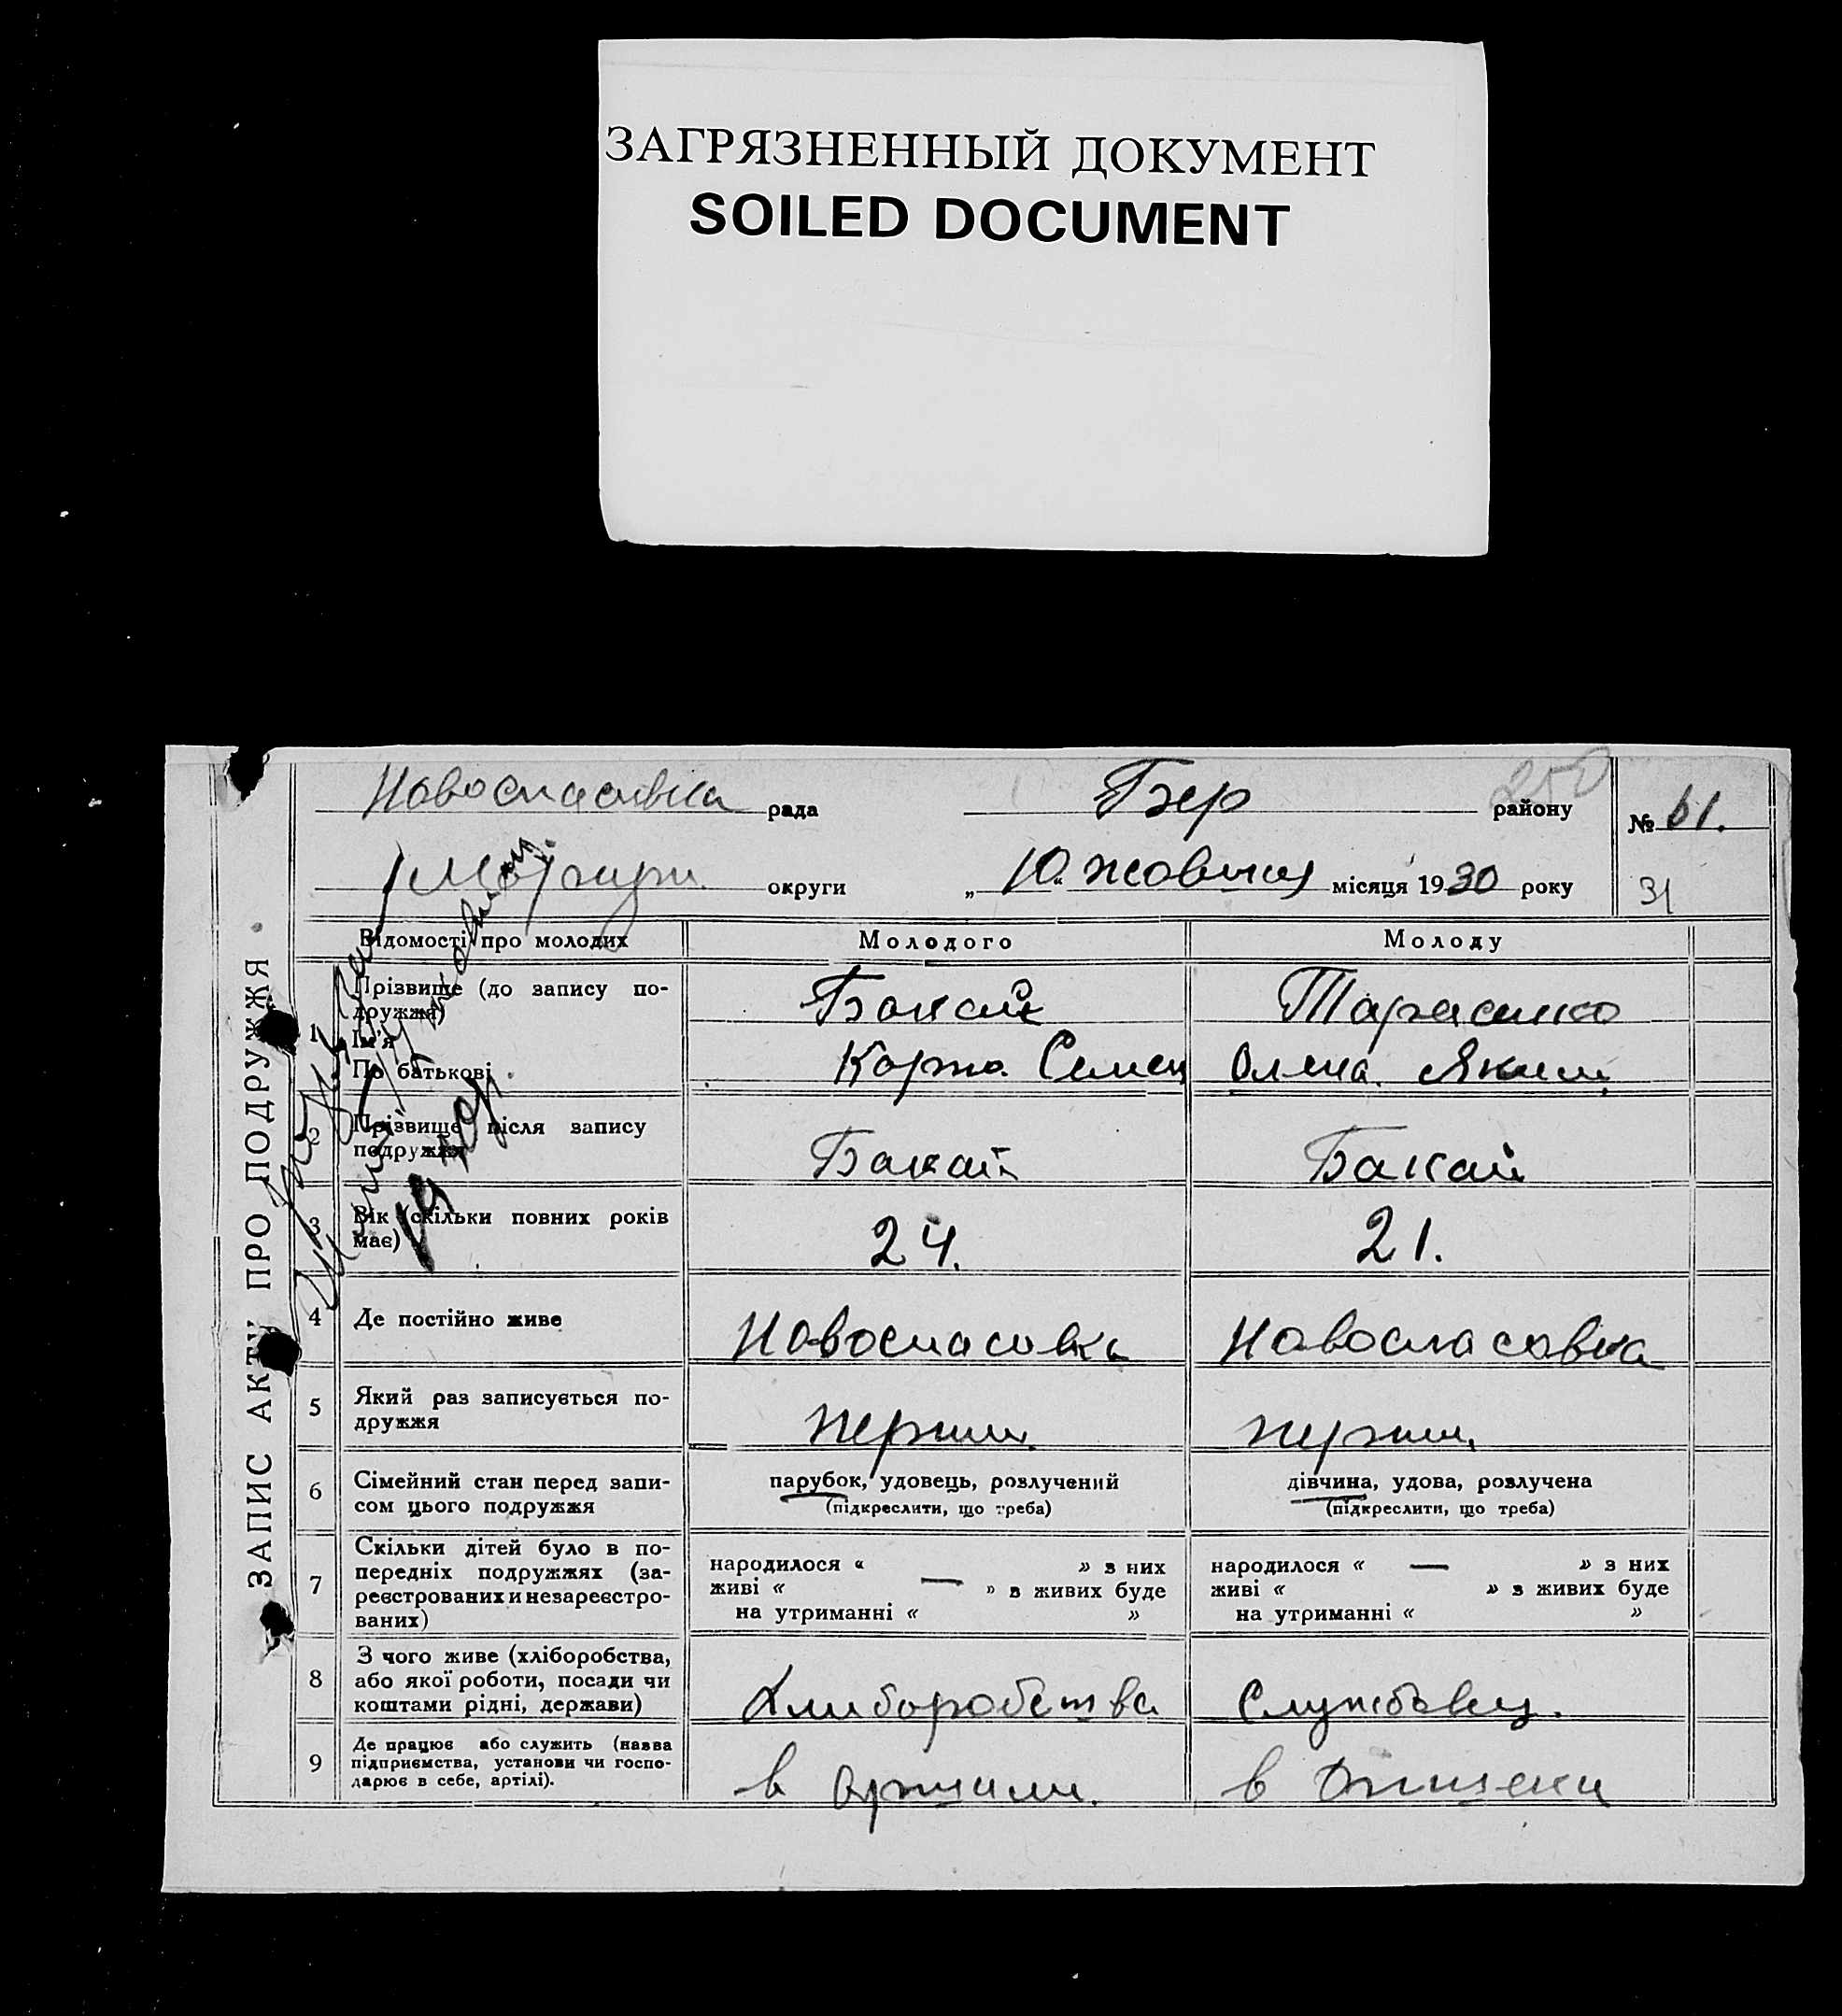 ЗАГРЯЗНЕННЫЙ ДОКУМЕНТ
SOILED DOCUMENT
Новоспасивка рада Бер району № 61.
250
округи „10“ жовтня місяця 1930 року
31
ЗАПИС АКТУ ПРО ПОДРУЖЖЯ
Відомості про молодих Молодого Молоду
1 Прізвище (до запису по-
дружжя) Бакай Тарасенко
Ім'я
По батькові Семен Олена Яким
2 Прізвище після запису
подружжя Бакай Бакай
3 Вік (скільки повних років
має) 24. 21.
4 Де постійно живе Новоспасовка Новоспасовка
5 Який раз записується по-
дружжя перший перший
6 Сімейний стан перед запи-
сом цього подружжя
парубок, удовець, розлучений
(підкреслити, що треба)
дівчина, удова, розлучена
(підкреслити, що треба)
7 Скільки дітей було в по-
передніх подружжях (за-
реєстрованих и незареєстро-
ваних)
народилося « » з них
живі « — » з живих буде
на утриманні « »
народилося « — » з них
живі « » з живих буде
на утриманні « »
8 З чого живе (хліборобства,
або якої роботи, посади чи
коштами рідні, держави) Хлиборобства Службовец.
9 Де працює або служить (назва
підприємства, установи чи госпо-
дарює в себе, артілі). в артили. в